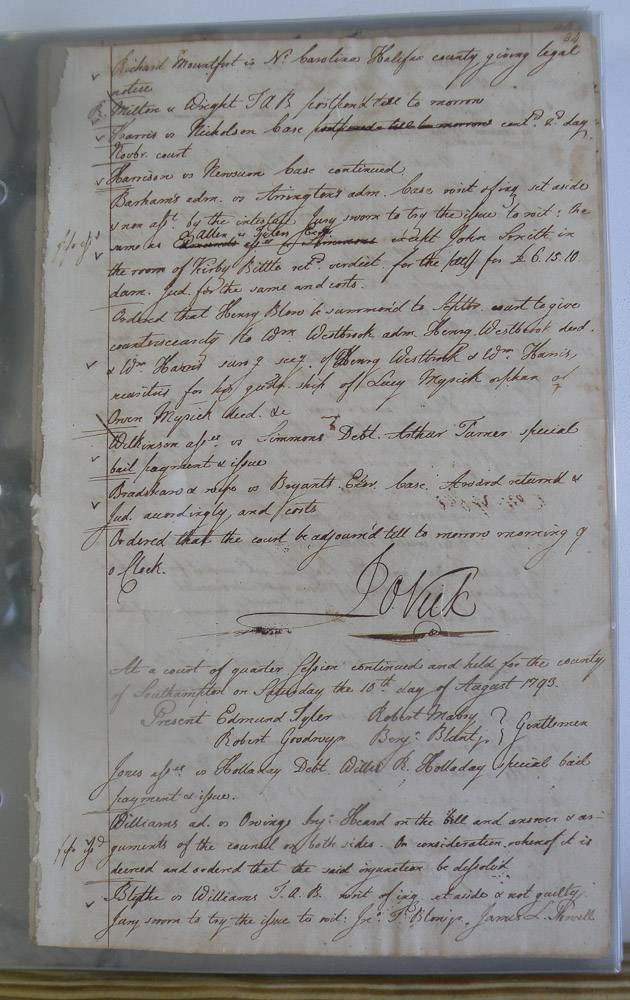 Richard Mountfort in No. Carolina Halifax county giving legal
notice
Milton vs Wright T A B postpon'd till to morrow
Harris vs Nicholson Case postponed till to morrow cont.d 2d day
Novbr. court
Harrison vs Newsum Case continued
Barham's adm. vs Arrington's adm. Case writ of inq set aside
& non asst. by the intestate Jury sworn to try the issue to wit: the
Eallen & Files Exor
same as of Simmons except John Smith in
the room of Kirby Bittle ret.d verdict for the pltff for £6.15.10
dam. Jud. for the same and costs.
Ordered that Henry Blow be summon'd to Septbr. court to give
countersecurity to Wm. Westbrook adm. Henry Westbrook deed.
& Wm. Harris of Henry Westbrook & Wm. Harris,
for his guard.ship of Lucy Mysick orphan of
Owen Mysick deed. &c
Wilkinson assee. vs Simmons Debt. Arthur Turner special
bail payment & issue
Bradshaw & wife vs Bryants Exor. Case. Award return'd &
Jud. accordingly, and costs
Ordered that the court be adjourn'd till to morrow morning 9
o Clock.
J O Vick
At a court of quarter Session continued and held for the county
of Southampton on Saturday the 10th day of August 1793.
Present Edmund Tyler Robert Mabry
Robert Goodwyn Benj. Blunt Gentlemen
Jones assee vs Holladay Debt Willis R. Holladay special bail
payment & issue.
Williams ad. vs Owings Inj. Heard on the bill and answer & ar-
guments of the counsel on both sides. On consideration whereof it is
decreed and ordered that the said injunction be dissolv'd
Blythe vs Williams T. A. B. writ of inq. set aside & not guilty
Jury sworn to try the issue to wit: James L.